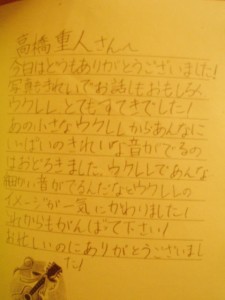 高橋重人さんへ
今日はどうもありがとうございました!
写真もきれいでお話しもおもしろく
ウクレレとてもすてきでした!
あの小さなウクレレからあんなに
いっぱいのきれいな音がでるの
はおどろきました。ウクレレであんな
細かい音がでるんだなとウクレレの
イメージが一気にかわりました!
これからもがんばって下さい!
お忙しいのにありがとうございまし
た!